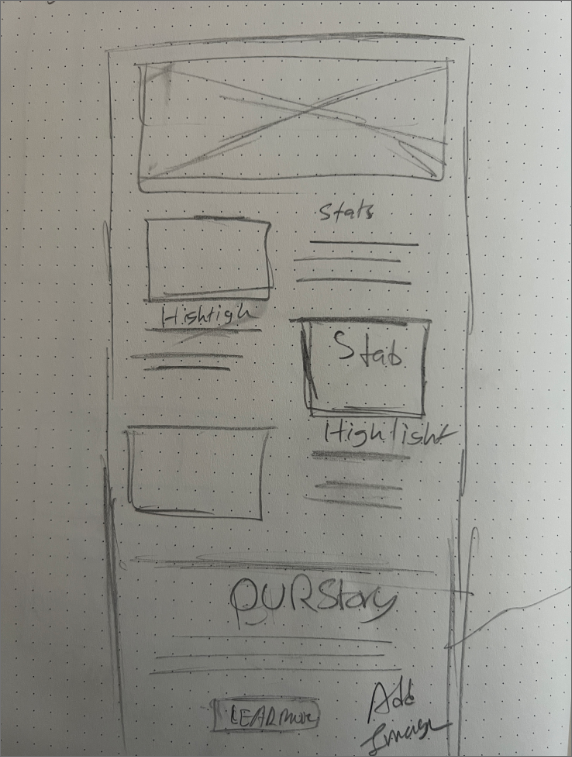 Stats
Hishtigh
Stab
Highlisht
OURStory
LEARNmore
Add
Image